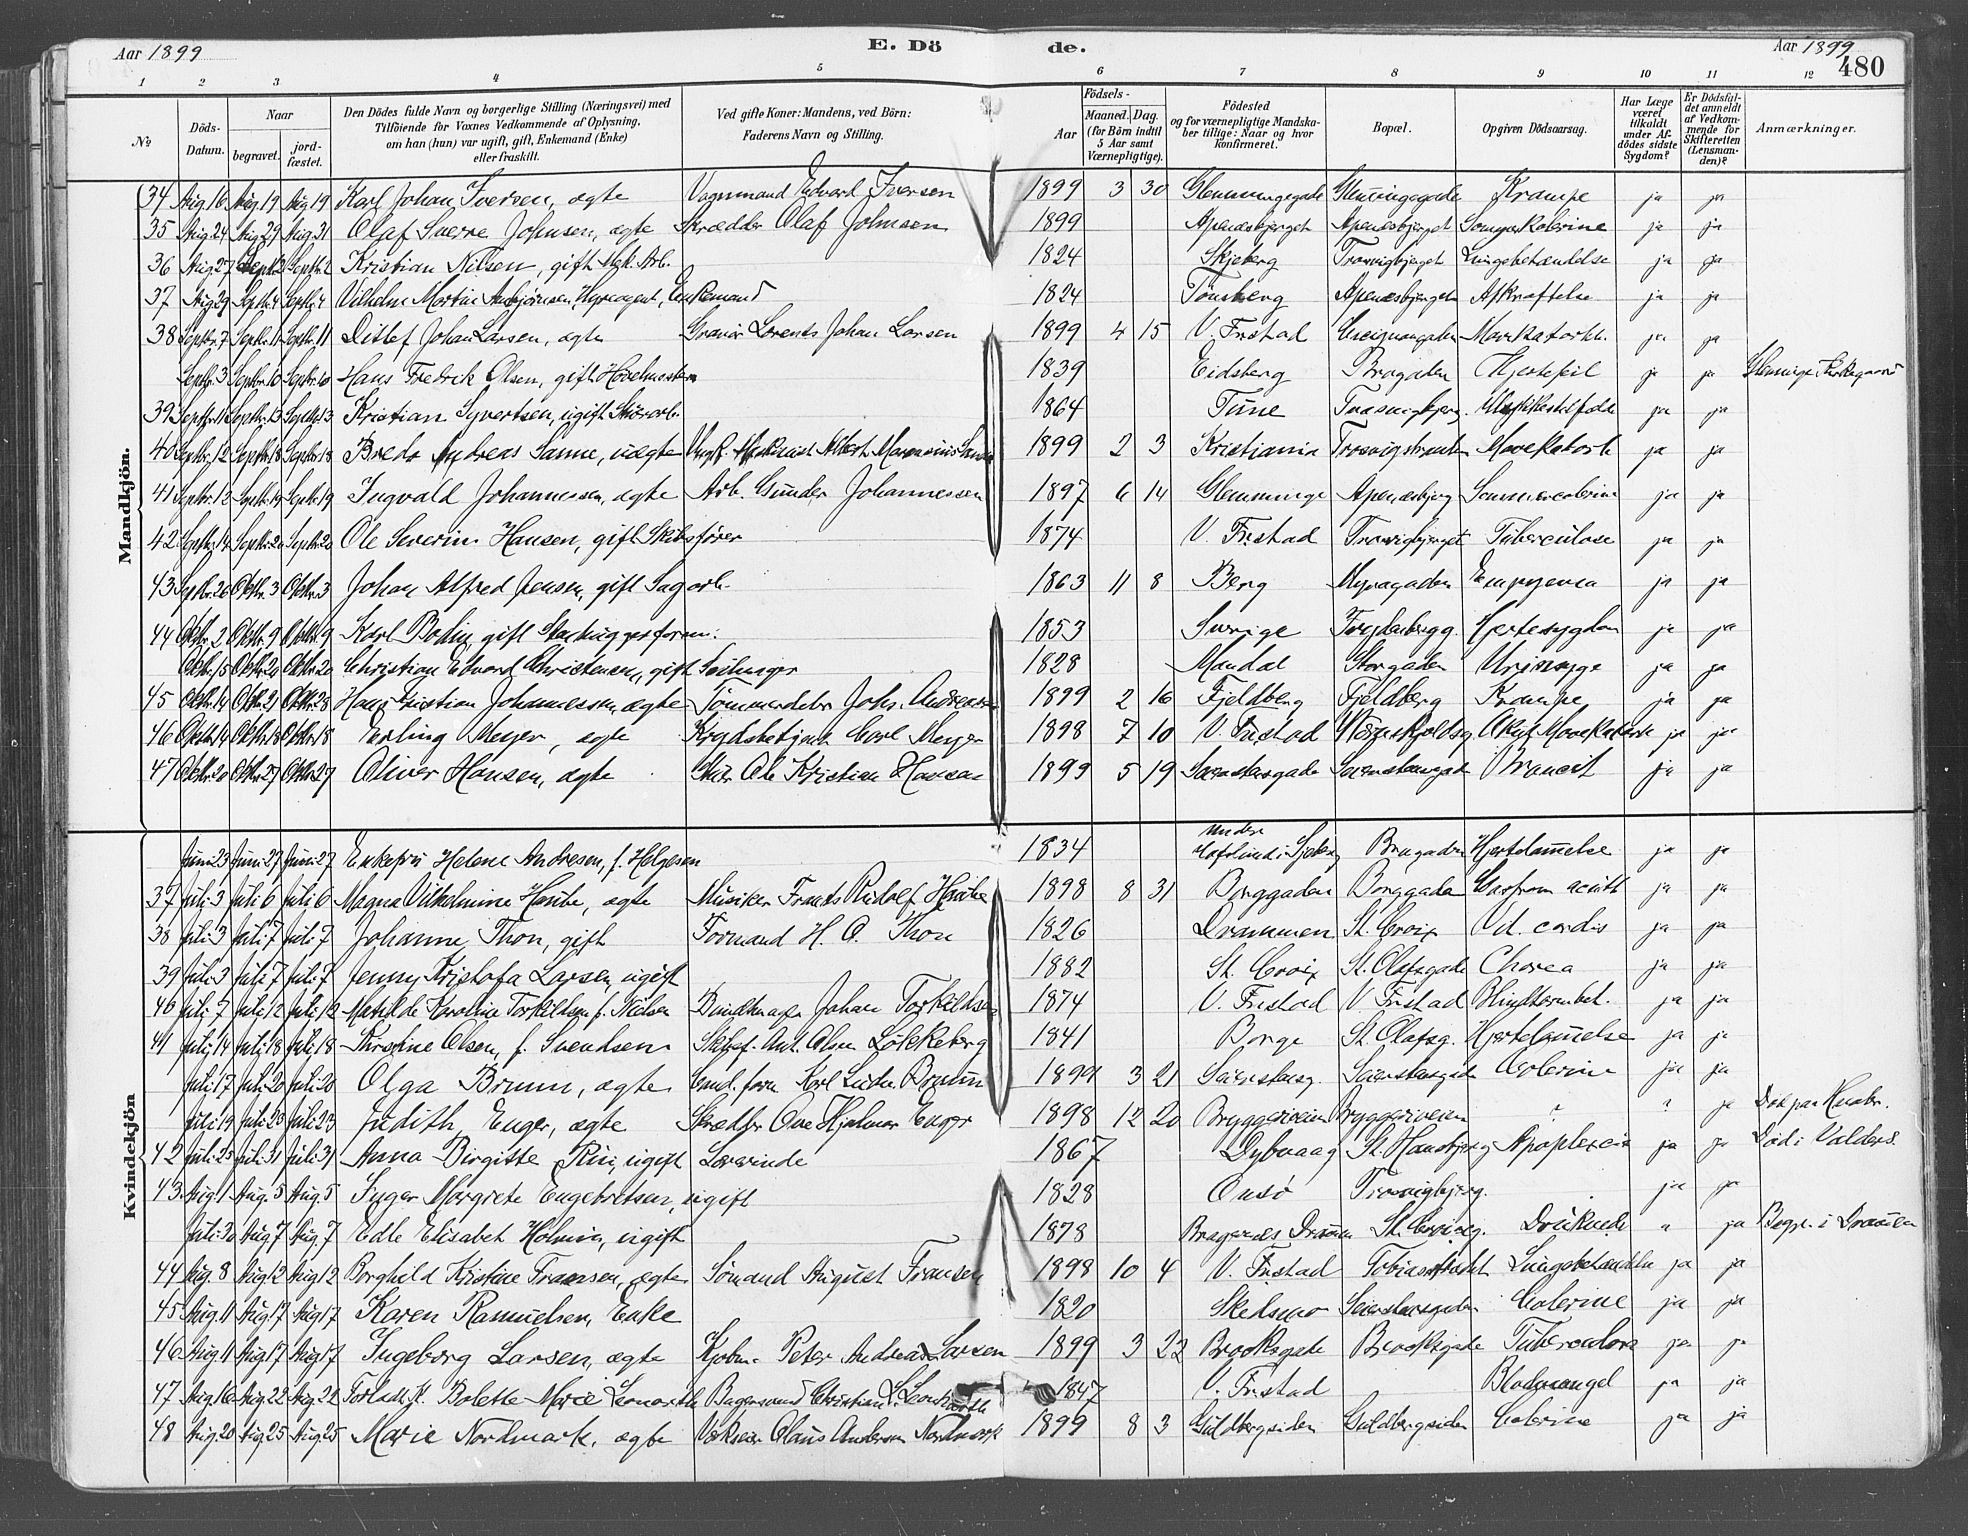 Aar 1899 E. Dö de. Aar 1899
480
1 2 3 4 5 6 7 8 9 10 11 12
No Döds-Datum. Naar begravet. jord-fæstet. Den Dödes fulde Navn og borgerlige Stilling (Næringsvei) med Tilföiende for Voxnes Vedkommende af Oplysning, om han (hun) var ugift, gift, Enkemand (Enke) eller fraskilt. Ved gifte Koner: Mandens, ved Börn: Faderens Navn og Stilling. Födsels- Aar Maaned. Dag. (for Börn indtil 5 Aar samt Værnepligtige). Födested og for værnepligtige Mandskaber tillige: Naar og hvor konfirmeret. Bopæl. Opgiven Dödsaarsag. Har Læge været tilkaldt under Afdödes sidste Sygdom? Er Dödsfaldet anmeldt af Vedkommende for Skifteretten (Lensmanden)? Anmærkninger.
Mandkjön.
34 Aug. 16 Aug. 19 Aug. 19 Karl Johan Iversen, ægte Vognmand Edvart Iversen 1899 3 30 Glemmingegade Glemmingegade Krampe ja ja
35 Aug. 24 Aug. 29 Aug. 31 Olaf Sverre Johnsen, ægte Skrædder Olaf Johnsen 1899 Apenæsbjerget Apenæsbjerget ja ja
36 Aug. 27 Septbr. 2 Septbr. 2 Kristian Nilsen, gift 1824 Skjeberg Trosvigbjerget Lungebetændelse ja ja
37 Aug. 29 Septbr. 4 Septbr. 4 Vilhelm Martin Asbjörnsen, Enkemand 1824 Tönsberg Apenæsbjerget Afkræftelse ja ja
38 Septbr. 7 Septbr. 11 Septbr. 11 Ditlef Johan Larsen, ægte Gravör Lorents Johan Larsen 1899 4 15 V. Frstad ja ja
Septbr. 3 Septbr. 10 Septbr. 10 Hans Fredrik Olsen, gift Hövelmester 1839 Eidsberg Brogaden Hjertefeil ja ja Glemminge Kirkegaard
39 Septbr. 11 Septbr. 13 Septbr. 13 Kristian Syvertsen, ugift 1864 Tune Trosvigbjerg. Ulykkestilfælde ja ja
40 Septbr. 12 Septbr. 18 Septbr. 18 Bredo Andreas Sanne, uægte 1899 2 3 Kristiania Mavekatarh ja ja
41 Septbr. 13 Septbr. 19 Septbr. 19 Ingvald Johannessen, ægte Arb. Gunder Johannessen 1897 6 14 Glemminge Apenæsbjerg Sommercolerine ja ja
42 Septbr. 14 Septbr. 20 Septbr. 20 Ole Severin Hansen, gift Skibsförer 1874 V. Frstad Trosvigbjerget Tuberculose ja ja
43 Septbr. 26 Oktbr. 3 Oktbr. 3 Johan Alfred Jensen, gift Sagarb. 1863 11 8 Berg Myragaden Empyema ja ja
44 Oktbr. 2 Oktbr. 9 Oktbr. 9 Karl Bodin, gift 1853 Sverige Hjertesygdom ja ja
Oktbr. 15 Oktbr. 20 Oktbr. 20 Christian Edvard Christensen, gift Seilmager 1828 Mandal Storgaden Urinsyge ja ja
45 Oktbr. 19 Oktbr. 21 Oktbr. 28 Hans Kristian Johannessen, ægte Tömmerdeler Johs. Andreasen 1899 2 16 Fjeldberg Fjeldberg Krampe ja ja
46 Oktbr. 14 Oktbr. 18 Oktbr. 18 Erling Meyer, ægte Krydsbetjent Carl Meyer 1898 7 10 V. Frstad Akut Mavekatarh ja ja
47 Oktbr. 20 Oktbr. 27 Oktbr. 27 Oliver Hansen, ægte Stuer Ole Kristian Hansen 1899 5 19 Seierstensgade Seierstensgade Bronchit ja ja
Kvindekjön
Juni 23 Juni 27 Juni 27 Enkefru Helene Andresen, f. Helgesen 1834 i Skjeberg Brogaden Hjertelammelse ja ja
37 Juli 3 Juli 6 Juli 6 Magna Vilhelmine Haube, ægte Musiker Frants Rudolf Haube 1898 8 31 Borggaden Borggaden ja ja
38 Juli 3 Juli 7 Juli 7 Johanne Thon, gift Formand H. O. Thon 1826 Drammen St. Croix Vit. cordis ja ja
39 Juli 3 Juli 7 Juli 7 Jenny Kristofa Larsen, ugift 1882 St. Croix St. Olafsgade Chorea ja ja
40 Juli 7 Juli 12 Juli 12 Matilde Karoline Torkildsen, f. Nielsen Johan Torkildsen 1874 V. Frstad V. Frstad Blindtarmbet. ja ja
41 Juli 14 Juli 18 Juli 18 Kristine Olsen, f. Svendsen Skibsf. Ant. Olsen Lökkeberg 1841 Borge St. Olafsg. Hjertelammelse ja ja
Juli 17 Juli 20 Juli 20 Olga Bruun, ægte Karl Ludv. Bruun 1899 3 21 Seierstensg. Seierstensgade Colerine ja ja
Juli 19 Juli 23 Juli 23 Judith Enger, ægte Skrædder Ove Hjalmar Enger 1898 12 20 Bryggeriveien Bryggeriveien " " ja Död paa Hvaler.
42 Juli 25 Juli 31 Juli 31 Anna Birgitte Riis, ugift Lærerinde 1867 Dybvaag St. Hansbjerg Apoplexia ja ja Död i Valders.
43 Aug. 1 Aug. 5 Aug. 5 Inger Margrete Engebretsen, ugift 1828 Onsö Trosvigbjerg. ja ja
Juli 30 Aug. 7 Aug. 7 Edle Elisabet Holmin, ugift 1878 Bragernes Drammen St. Croixg. Druknede " ja Begr. i Drammen
44 Aug. 8 Aug. 12 Aug. 12 Borghild Kristine Fransen, ægte Sömand August Fransen 1898 10 4 V. Frstad Lungebetændelse ja ja
45 Aug. 11 Aug. 17 Aug. 17 Karen Ramuelsen, Enke 1820 Skedsmo Seierstensgaden Colerine ja ja
46 Aug. 11 Aug. 17 Aug. 17 Ingeborg Larsen, ægte Kjöbm. Peter Andreas Larsen 1899 3 22 Brooksgade Brooksgade Tuberculose ja ja
47 Aug. 16 Aug. 22 Aug. 22 Bolette Marie Leonarth Christian Leonharth 1847 V. Frstad Blodmangel ja ja
48 Aug. 20 Aug. 25 Aug. 25 Marie Nordmark, ægte Olaus Andersen Nordmark 1899 8 3 Guldbergsiden Guldbergsiden Colerine ja ja